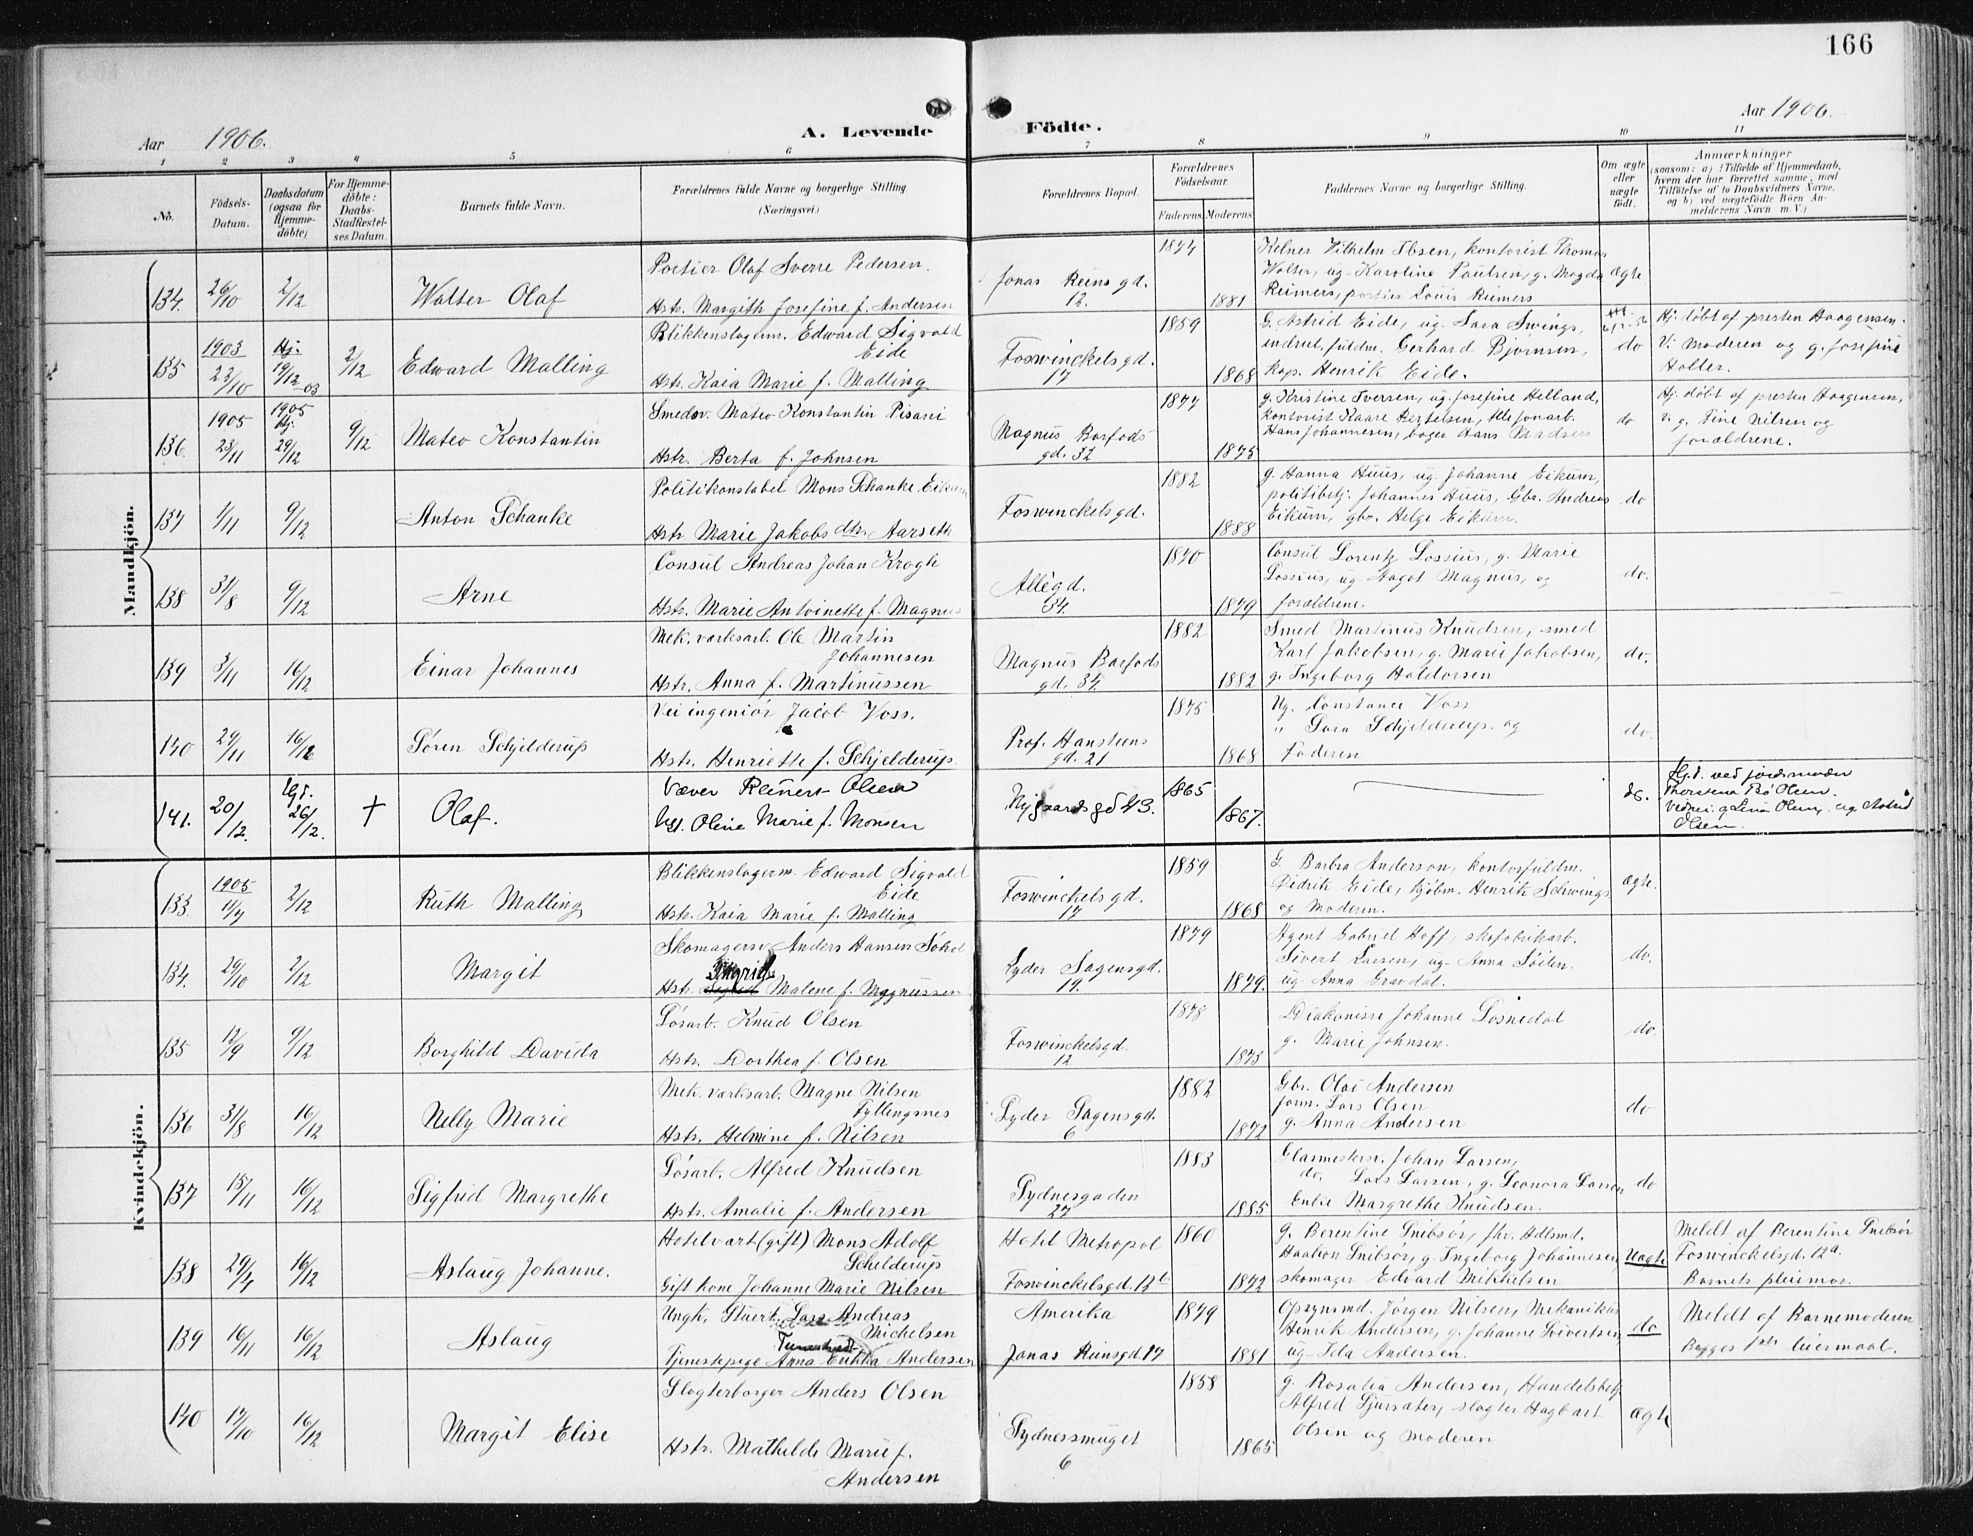 166
Aar 1906.
A. Levende
Födte.
Aar 1906.
1 2 3 4 5 6 7 8 9 10 11
No.
Födsels-
Datum.
Daabsdatum
(ogsaa for
Hjemme-
döbte)
For Hjemme-
döbte:
Daabs-
Stadfæstel-
ses Datum.
Barnets fulde Navn.
Forældrenes fulde Navne og borgerlige Stilling.
(Næringsvei.)
Forældrenes Bopæl.
Forældrenes
Födselsaar.
Faderens. Moderens.
Faddernes Navne og borgerlige Stilling.
Om ægte
eller
uægte
födt.
Anmærkninger
(saasom: a) i Tilfælde af Hjemmedaab,
hvem der har forrettet samme, med
Tilföielse af to Daabsvidners Navne,
og b) ved uægtefödte Börn An-
melderens Navn m. V.)
Mandkjön.
134. 26/10 2/12 Walter Olaf
Portier Olaf Sverre Pedersen.
Hstr. Margith Josefine f. Andersen
Jonas Reins gd.
12.
1874 1881
Kelner Vilhelm Ibsen, kontorist Thomas
Walter, ug. Karoline Paulsen, g. Magda
Reimers, portier Louis Reimers
ægte
135 1903 23/10 Hj. 19/12 03 2/12 Edward Malling
Blikkenslagerm. Edward Sigvald
Eide
Hstr. Kaia Marie f. Malling
Foswinckelsgd.
17
1859 1868
G. Astrid Eide, ug. Sara Swings,
indrul. fuldm. Gerhard Bjørnsen,
kap. Henrik Eide.
do
Hj. døbt af presten Haagensen.
V: moderen og g. Josefine
Holter.
136 1905 23/11 1905 Hj. 29/12 9/12 Mateo Konstantin
Smedsv. Mateo Konstantin Pisani
Hstr. Berta f. Johnsen
Magnus Barfods
gd. 32
1877 1875
g. Kristine Iversen, ug. Josefine Helland,
kontorist Kaare Bertelsen,
Hans Johannesen, bager Hans Madsen
do
Hj. døbt af presten Haagensen,
v. g. Tine Nilsen og
forældrene.
137 1/11 9/12 Anton Schanke
Politikonstabel Mons Schanke Eikum
Hstr. Marie Jakobsdtr. Aarseth
Foswinckelsgd.
1882 1888
g. Hanna Huus, ug. Johanne Eikum,
politibetj. Johannes Huus, Gbr. Andreas
Eikum, gbr. Helge Eikum.
do
138 31/8 9/12 Arne
Consul Andreas Johan Krogh
Hstr. Marie Antoinette f. Magnus
Allégd.
34
1870 1879
Consul Lorentz Lossius, g. Marie
Lossius, ug. Aagot Magnus, og
forældrene.
do.
139 3/11 16/12 Einar Johannes
Mek. værksarb. Ole Martin
Johannesen
Hstr. Anna f. Martinussen
Magnus Barfods
gd. 34.
1882 1882
Smed Martinus Knudsen, smed
Karl Jakobsen, g. Marie Jakobsen,
g. Ingeborg Haldorsen
do.
140 29/11 16/12 Søren Schjelderup
Vei ingeniør Jacob Voss.
Hstr. Henriette f. Schjelderup.
Prof. Hansteens
gd. 21
1875 1868
Ug. Constance Voss
" Sara Schjelderup. og
Faderen
do.
141. 20/12. 26/12. † Olaf.
Væver Reinert Olsen
Hst. Oline Marie f. Monsen
Nygaardsgd 43.
1865 1867.
do.
Hj.d. ved jordemoder
Thorstena Bø Olsen.
Vidner: g. Lina Olsen, ug. Astrid
Olsen.
Kvindekjön.
133. 1905 11/7 2/12 Ruth Malling
Blikkenslagerm. Edward Sigvald
Eide
Hstr. Kaia Marie f. Malling
Foswinckelsgd.
17
1859 1868
G. Barbra Anderson, kontorfuldm.
Didrik Eide, kjøbm. Henrik Schwings
og Moderen.
ægte.
134. 29/10 2/12 Margit
Skomagersv. Anders Hansen
Hstr. Ingrid Malene f. Magnussen
Lyder Sagensgd.
19.
1879 1879.
Agent Gabriel Hoff, skofabrikarb.
Sivert Larsen, ug. Anna
ug. Anna Gravdal.
do.
135 12/9 9/12 Borghild Davida
Løsarb. Knud Olsen
Hstr. Dorthea f. Olsen
Foswinckelsgd.
12
1878 1873
Diakonisse Johanne Losnedal
g. Marie Johnsen.
do.
136 31/8 16/12 Nelly Marie
Mek. værksarb. Magne Nilsen
Fyllingsnes
Hstr. Helmine f. Nilsen
Lyder Sagensgd.
6
1882 1872
Gbr. Olai Andersen
form. Lars Olsen
g. Anna Andersen
do
137 15/11 16/12 Sigfrid Margrethe
Løsarb. Alfred Knudsen
Hstr. Amalie f. Andersen
Sydnesgaden
27
1883 1885
Glasmestersv. Johan Larsen,
do. Lars Larsen, g. Leonora Larsen
Enke Margrethe Knudsen.
do
138 29/4 16/12 Aslaug Johanne.
Hotelvært (gift) Mons Adolf
Schelderup
Gift kone Johanne Marie Nilsen
Hotel Metropol
Foswinckelsgd. 12
1860 1872
g. Berentine Snibsør, fhr. Hdlsmd.
Haakon Snibsør, g. Ingeborg Johannesen,
skomager Edvard Mikkelsen
Uægte
Meldt af Berentine Snibsør
Foswinckelsgd. 12a.
Barnets pleiemor.
139 16/11 16/12 Aslaug
Ungk. Stuert Lars Andreas
Michelsen
Tjenestepige Anna Andersen
Amerika
Jonas Reinsgd. 17
1879 1881
Opsynsmd. Jørgen Nilsen, Mekanikus
Henrik Andersen, g. Johanne Sivertsen,
ug. Ida Andersen.
do
Meldt af Barnemoderen
Begges 1ste leiermaal.
140 17/10 16/12 Margit Elise
Slagterborger Anders Olsen
Hstr. Mathilde Marie f.
Andersen
Sydnessmuget
6
1858 1865
g. Rosalia Andersen, Handelsbetj.
Alfred slagter Hagbart
Olsen og moderen
ægte